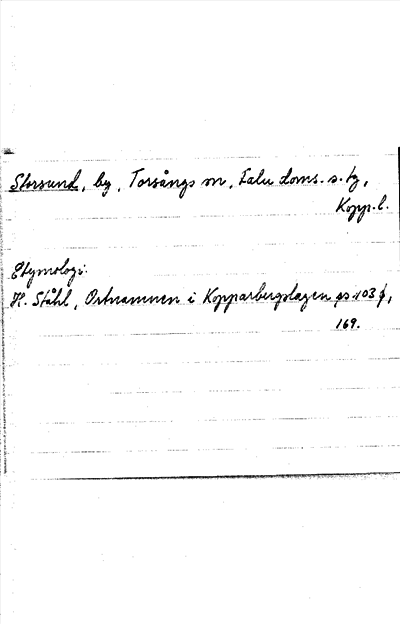 Storsund, by, Torsångs sn, Falu doms. s. tg,
Kopp. l.
Etymologi:
H. Ståhl, Ortnamnen i Kopparbergslagen s 103 f,
169.